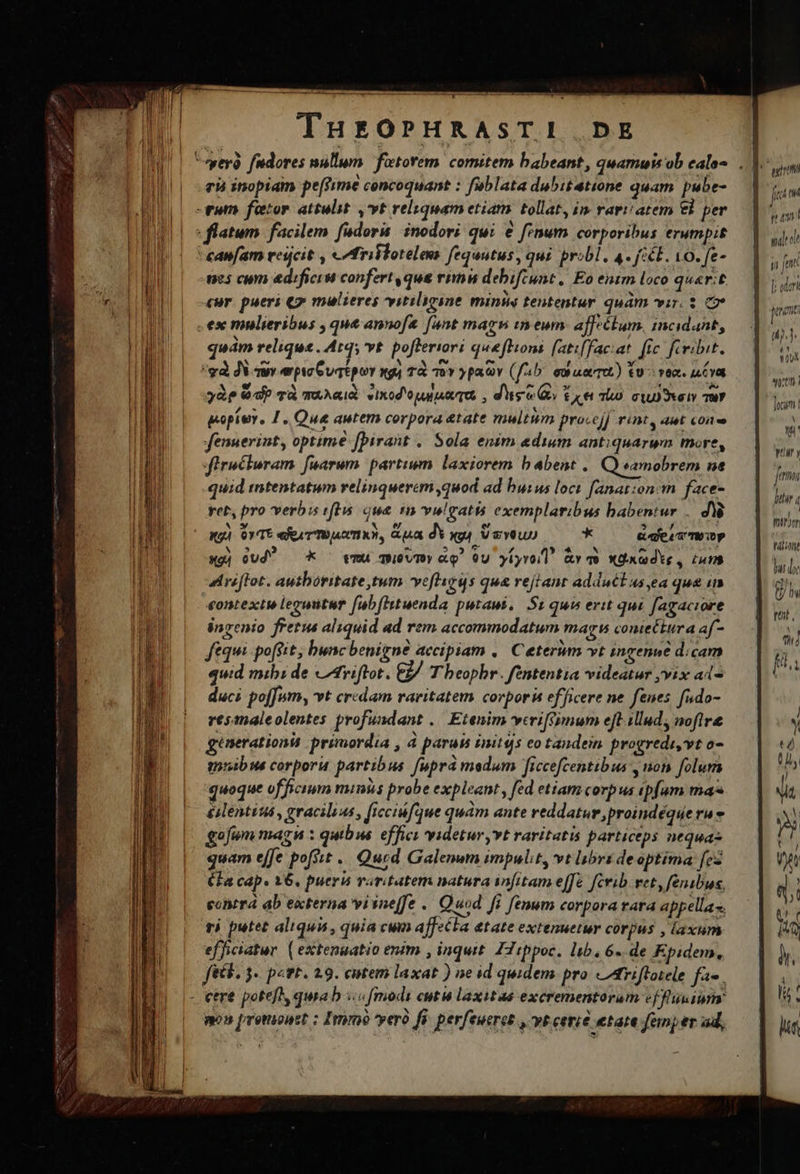 THEOPHRASTI DE
verò ſudores nullum fœtorem comitem habeant, quamuis ob calo-
ris inopiam peſſimè concoquant : ſublata dubitatione quam pube-
rum fœtor attulit , vt reliquam etiam tollat, in raritatem & per
flatum facilem ſudoris inodori qui è ſenum corporibus erumpit
cauſam reijcit , Ariſtotelem ſequutus, qui probl. 4. ſect. 10. ſe-
nes cum ædificiis confert, quæ rimis dehiſcunt. Eo enim loco quærit
cur pueri & mulieres vitiligine minùs tententur quàm viri : &
ex mulieribus , quæ annoſæ ſunt magis in eum affectum incidant,
quàm reliquæ. Atq; vt poſteriori quæſtioni ſatisfaciat ſic ſcribit.
τὰ δὲ τῶν πρεσϐυτέρων καὶ τὰ τῶν γραῶν (ſub. σώματα) εὔπνοα. μόνα
γὰρ ὥσπ τὰ παλαιὰ οἰκοδομήματα , διεστῶσαν ἔχει τὴν σύνθεσιν τῶν
μορίων. I. Quæ autem corpora ætate multùm proceſſerint, aut con-
ſenuerint, optimè ſpirant . Sola enim ædium antiquarum more,
ſtructuram ſuarum partium laxiorem habent . Quamobrem ne
quid intentatum relinquerem, quod ad huius loci ſanationem face-
ret, pro verbis iſtis quæ in vulgatis exemplaribus habentur . διὸ
καὶ ὄντε σπερματικὴ, ἅμα δὲ καὶ ὕπνου * ἀσπέρματον
καὶ οὐδ' * ἐπι ποιοῦσιν ἀφ' οὗ γίγνοιτ' ἂν τὸ κακῶδες , tum
Ariſtot. authoritate, tum veſtigijs quæ reſtant adductus, ea quæ in
contextu leguntur ſubſtituenda putaui. Si quis erit qui ſagaciore
ingenio fretus aliquid ad rem accommodatum magis coniectura aſ-
ſequi poſſit, hunc benignè accipiam . Cæterùm vt ingenuè dicam
quid mihi de Ariſtot. & Theophr. ſententia videatur , vix ad-
duci poſſum, vt credam raritatem corporis efficere ne ſenes ſudo-
res malè olentes profundant . Etenim veriſſimum eſt illud, noſtræ
generationis primordia , à paruis initijs eo tandem progredi, vt o-
mnibus corporis partibus ſupra modum ſicceſcentibus , non ſolum
quoque officium minùs probe expleant , ſed etiam corpus ipſum ma-
cilentius , gracilius, ſicciúſque quàm ante reddatur, proindéque ru-
goſum magis : quibus effici videtur, vt raritatis particeps nequa-
quam eſſe poſſit . Quod Galenum impulit, vt libri de optima ſe-
cta cap. 16. pueris raritatem natura inſitam eſſe ſcrib.ret, ſenibus
contrà ab externa vi ineſſe . Quod ſi ſenum corpora rara appella-
ri putet aliquis, quia cum affecta ætate extenuetur corpus , laxum
efficiatur ( extenuatio enim , inquit Hippoc. lib. 6. de Epidem.
ſect. 3. part. 29. cutem laxat ) ne id quidem pro Ariſtotele fa-
cere poteſt, quia ab eiuſmodi cutis laxitas excrementorum effluuium
non promouet : Immò verò ſi perſeueret , vt certè ætate ſemper ad,